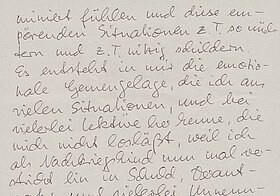 miniert fühlen und diese em-
pörenden Situationen z.T so nüch
tern und z.T witzig schildern.
Es entsteht in mir die emotio-
nale Gemengelage, die ich aus
vielen Situationen, und bei
vielerlei Lektüre her kenne, die
mich nicht losläßt, weil ich
als Nachkriegskind nun mal ver-
strickt bin in Schuld, Verant-
und vielerlei